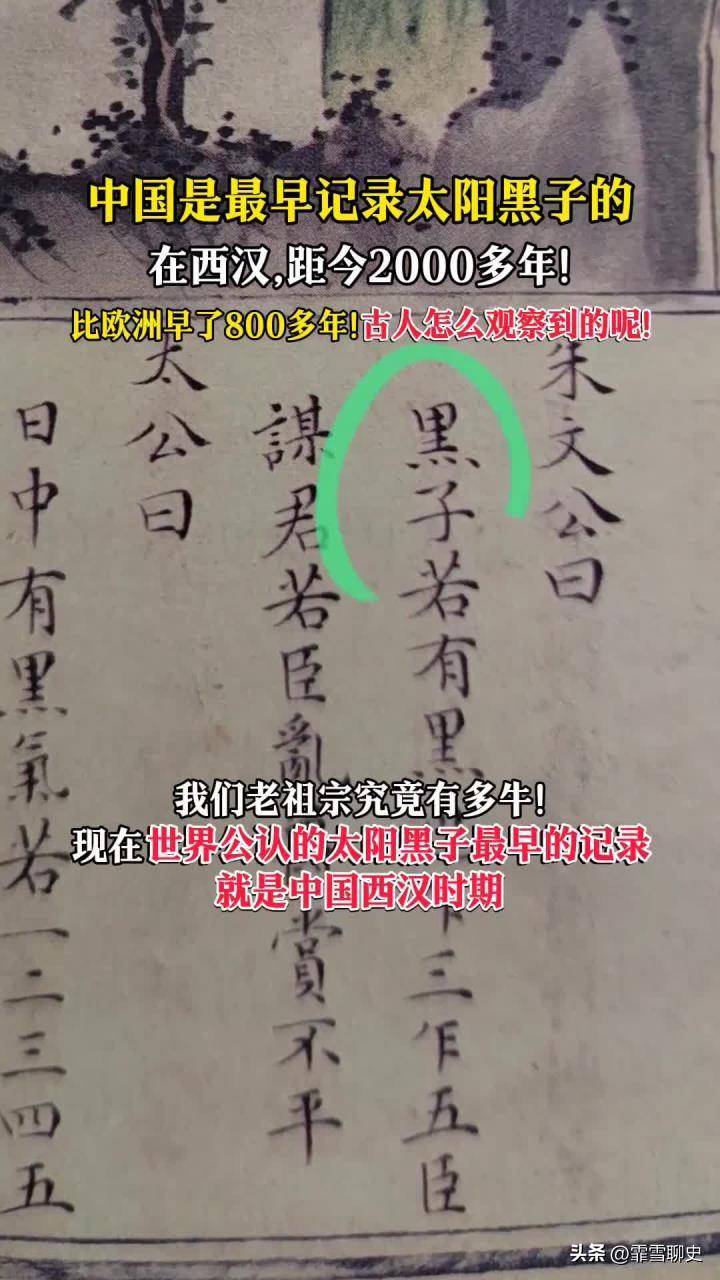 中国是最早记录太阳黑子的
在西汉,距今2000多年!
比欧洲早了800多年!古人怎么观察到的呢!
朱文公曰
黑子若有黑三乍五臣
謀君若臣亂賞不平
太公曰
日中有黑氣若一二三四五
我们老祖宗究竟有多牛!
现在世界公认的太阳黑子最早的记录
就是中国西汉时期
头条 @霏雪聊史